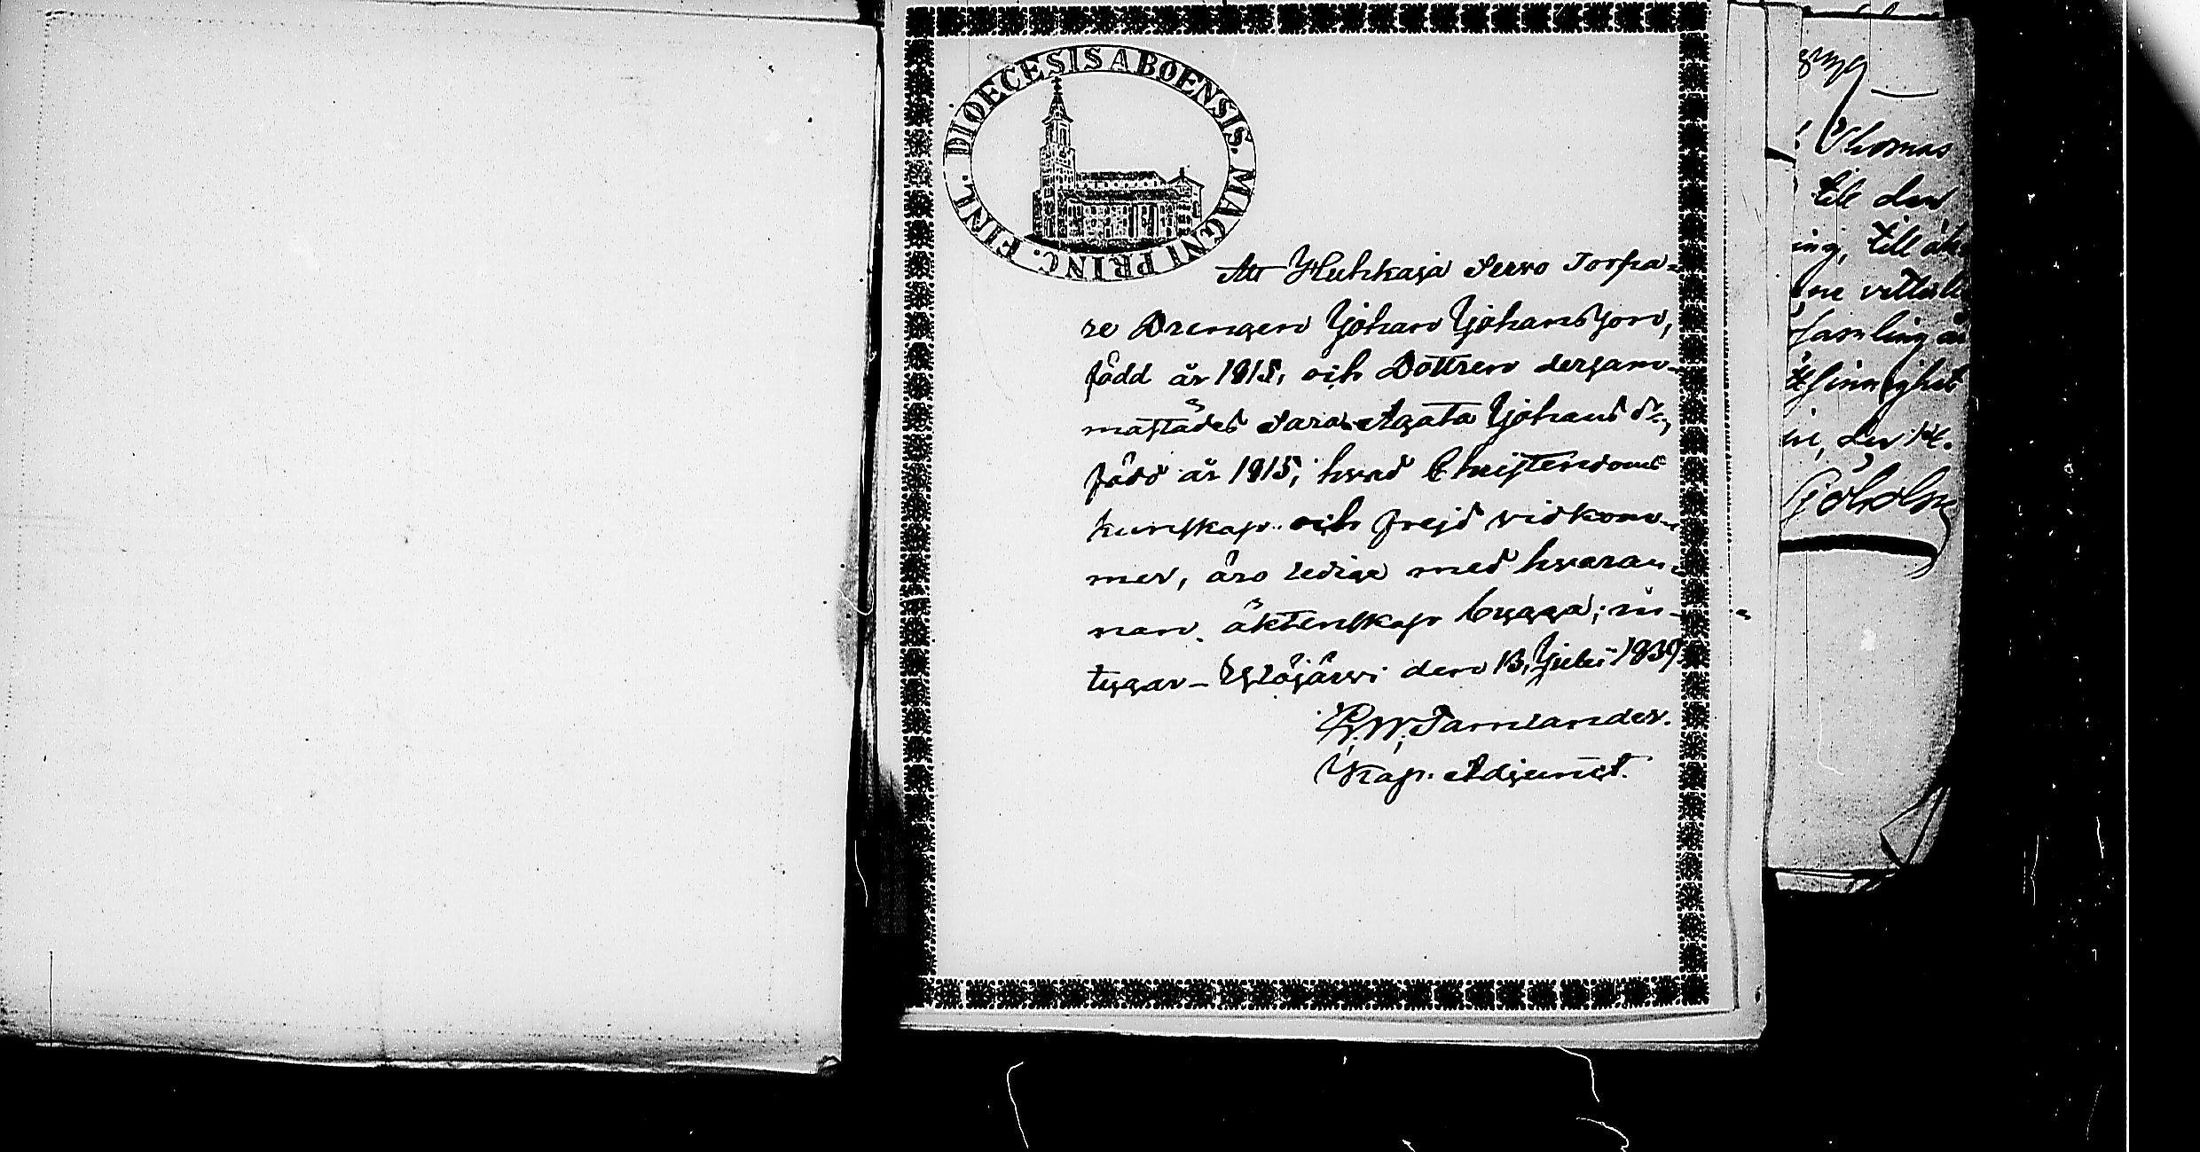 DIOECESIS ABOENSIS. MAGNI PRINC. FINL.
Att Huhkaja Servo Torpa-
re Drengen Johan Johansson,
född år 1815, och Dottren dersam-
mastädes Sara Agata Johans dr,
född år 1815, hvad Christendoms
kunskap och frejd vidkom-
mer, äro lediga med hvaran-
nan äktenskap bygga; in-
tygar – den 13 Julii 1839
W. Tamlander.
Kap. Adjunct.
Thomas
till den
ing, till äk
samling